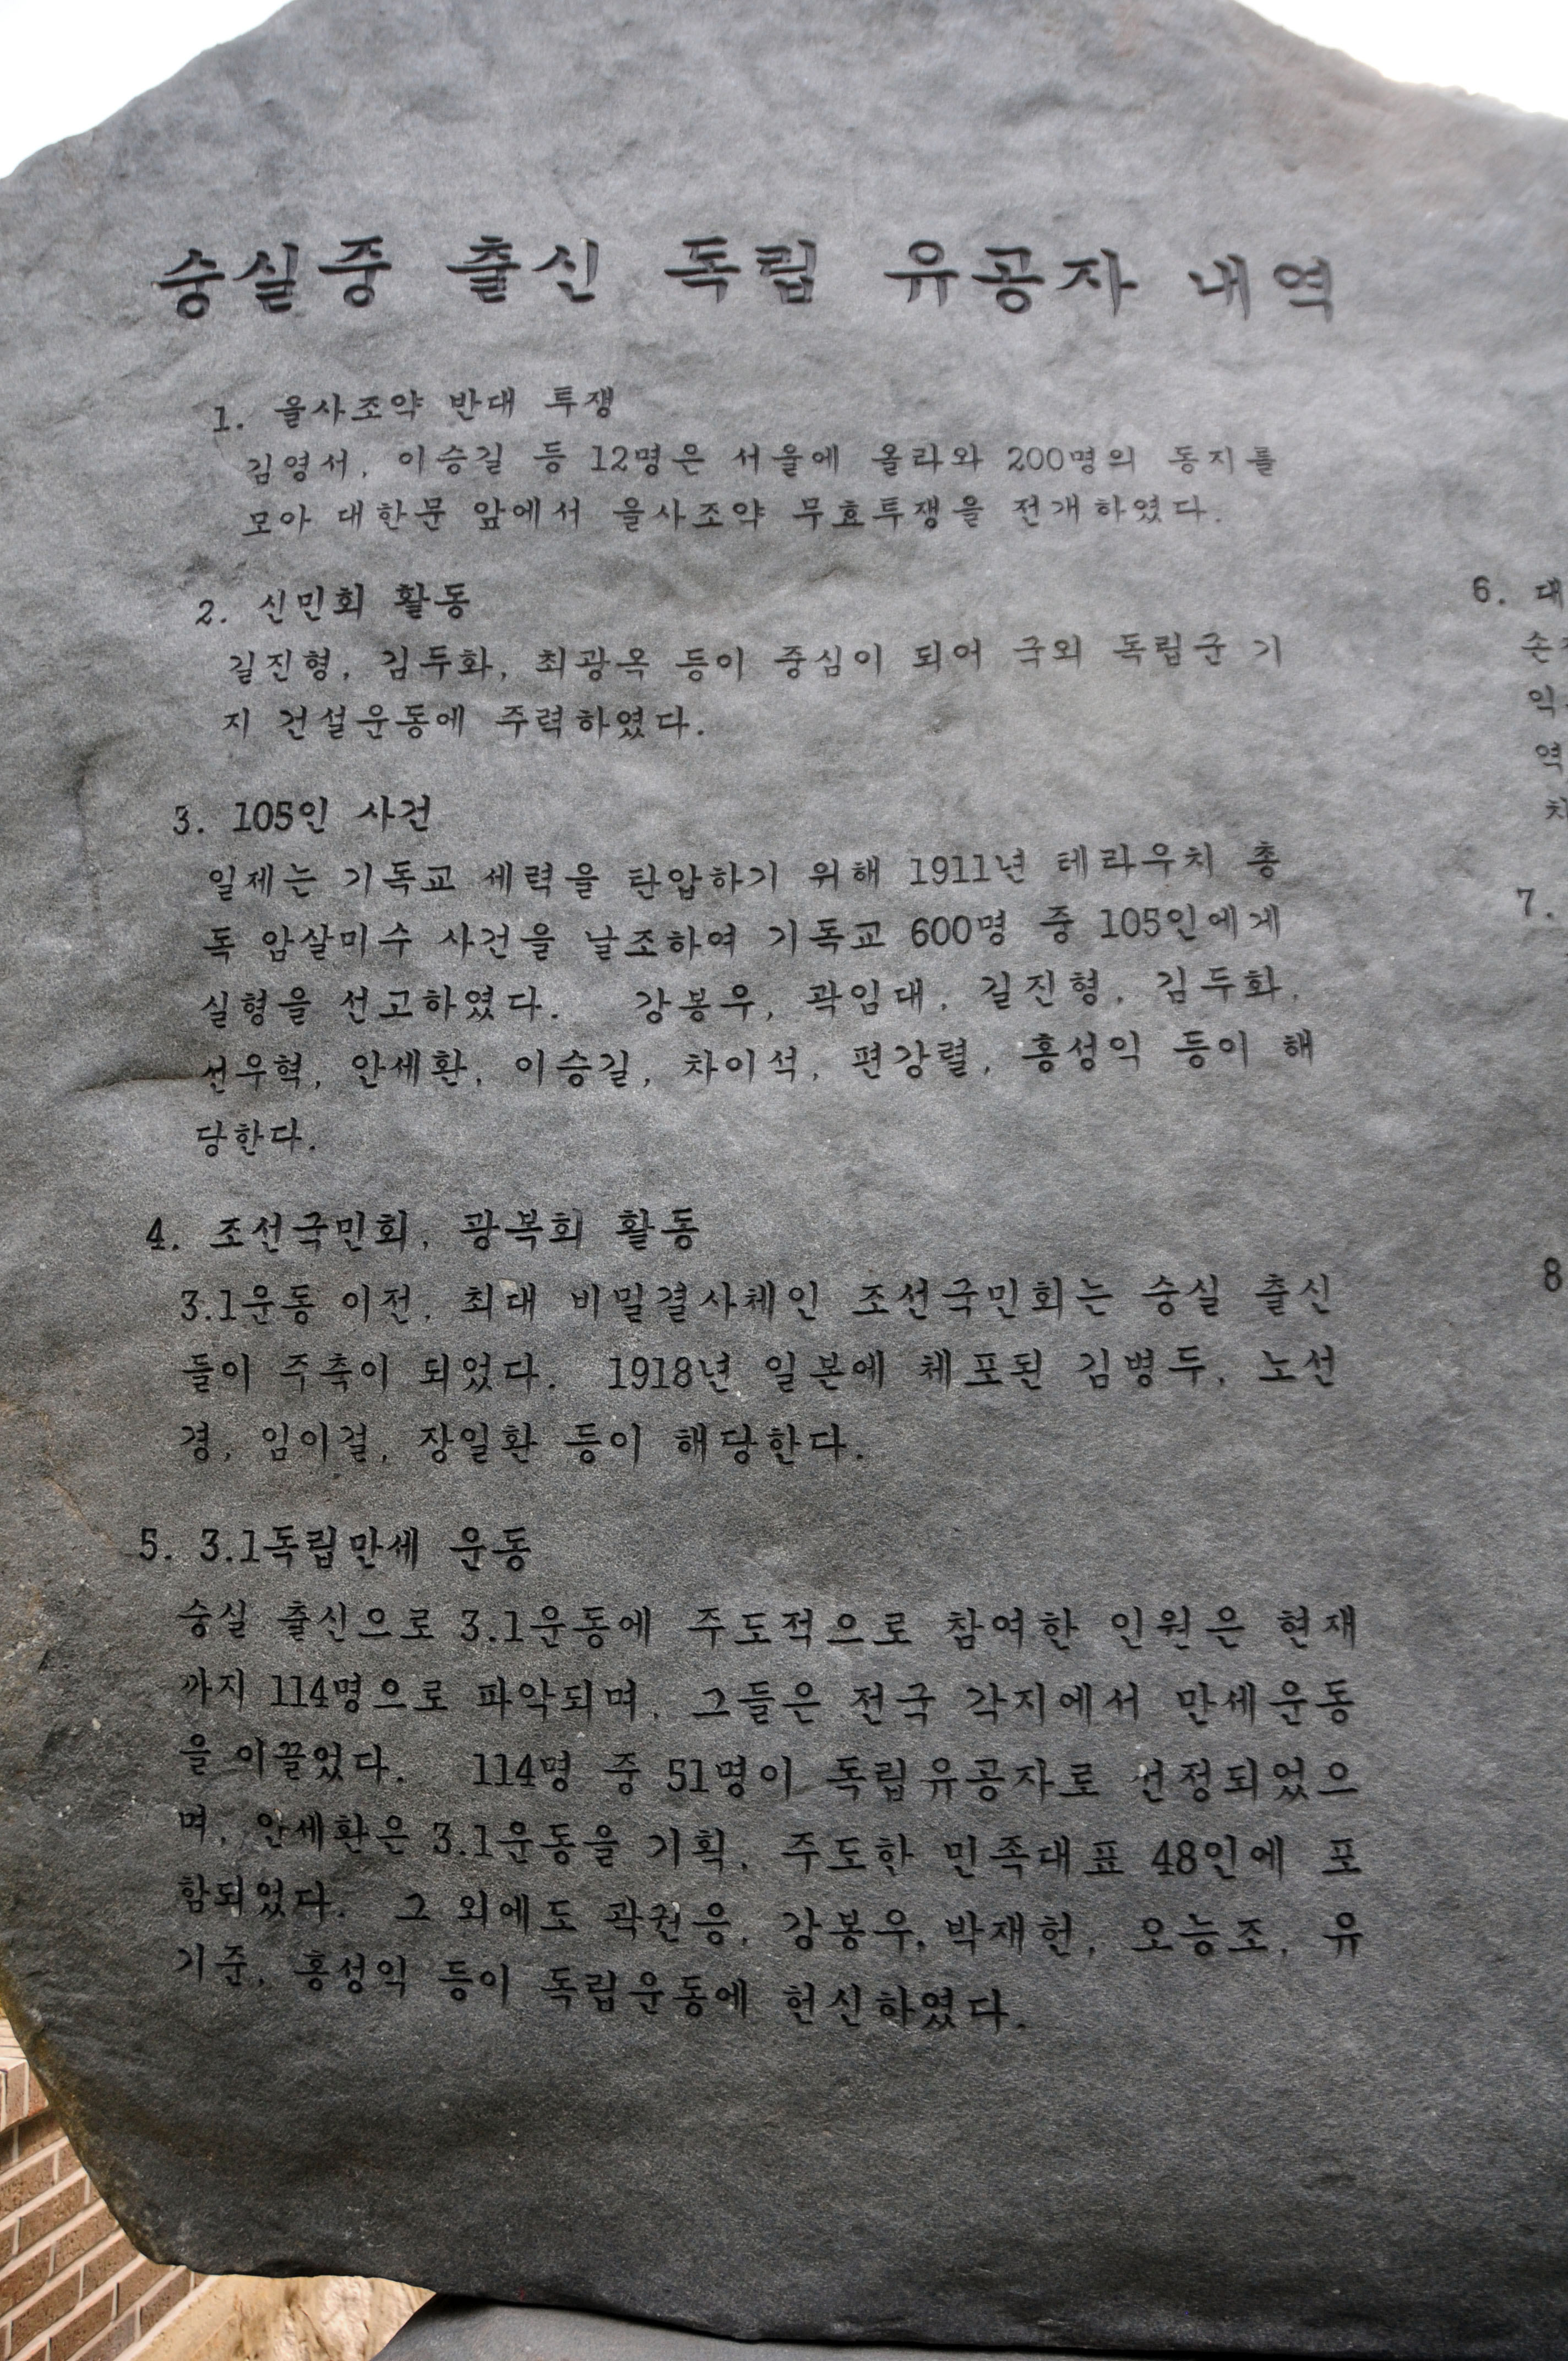 숭실중 출신 독립 유공자 내역
1. 을사조약 반대 투쟁
김영서, 이승길 등 12명은 서울에 올라와 200명의 동지를
모아 대한문 앞에서 을사조약 무효투쟁을 전개하였다.
2. 신민회 활동
길진형, 김두화, 최광옥 등이 중심이 되어 국외 독립군 기
지 건설운동에 주력하였다.
3. 105인 사건
일제는 기독교 세력을 탄압하기 위해 1911년 테라우치 총
독 암살미수 사건을 날조하여 기독교 600명 중 105인에게
실형을 선고하였다. 강봉우, 곽임대, 길진형, 김두화,
선우혁, 안세환, 이승길, 차이석, 편강렬, 홍성익 등이 해
당한다.
4. 조선국민회, 광복회 활동
3.1운동 이전, 최대 비밀결사체인 조선국민회는 숭실 출신
들이 주축이 되었다. 1918년 일본에 체포된 김병두, 노선
경, 임이걸, 장일환 등이 해당한다.
5. 3.1독립만세 운동
숭실 출신으로 3.1운동에 주도적으로 참여한 인원은 현재
까지 114명으로 파악되며, 그들은 전국 각지에서 만세운동
을 이끌었다. 114명 중 51명이 독립유공자로 선정되었으
며, 안세환은 3.1운동을 기획, 주도한 민족대표 48인에 포
함되었다. 그 외에도 곽권응, 강봉우, 박재헌, 오능조, 유
기준, 홍성익 등이 독립운동에 헌신하였다.
6. 대
손
익
역
7.
8